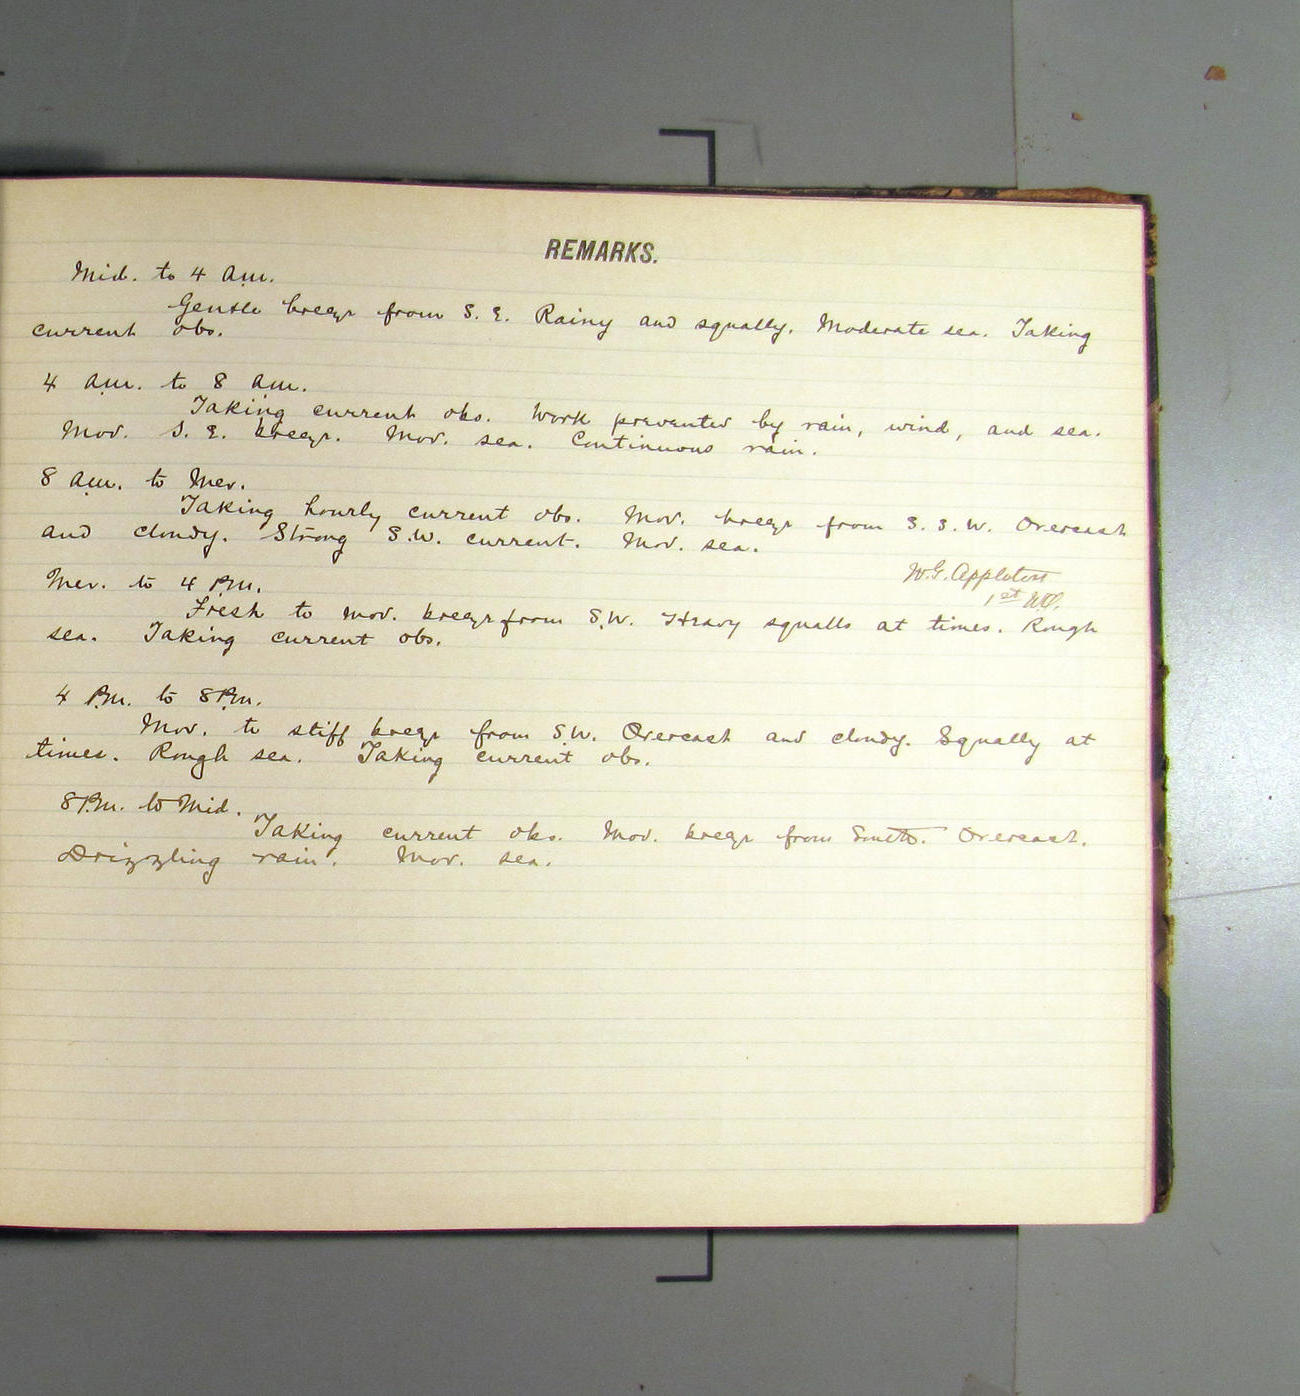 REMARKS.
Mid. to 4 a.m.
Gentle breeze from S. E. Rainy and squally. Moderate sea. Taking
current obs.
4 a.m. to 8 a.m.
Taking current obs. Work prevented by rain, wind, and sea.
Mod. S. E. breeze. Mod. sea. Continuous rain.
8 a.m. to Mer.
Taking hourly current obs. Mod. breeze from S. S. W. Overcast
and cloudy. Strong S.W. current. Mod. sea.
W.G. Appleton
1st W.O.
Mer. to 4 P.m.
Fresh to mod. breeze from S.W. Heavy squalls at times. Rough
sea. Taking current obs.
4 P.m. to 8 P.m.
Mod. to stiff breeze from S.W. Overcast and cloudy. Squally at
times. Rough sea. Taking current obs.
8 P.m. to Mid.
Taking current obs. Mod. breeze from South. Overcast.
Drizzling rain. Mod. sea.